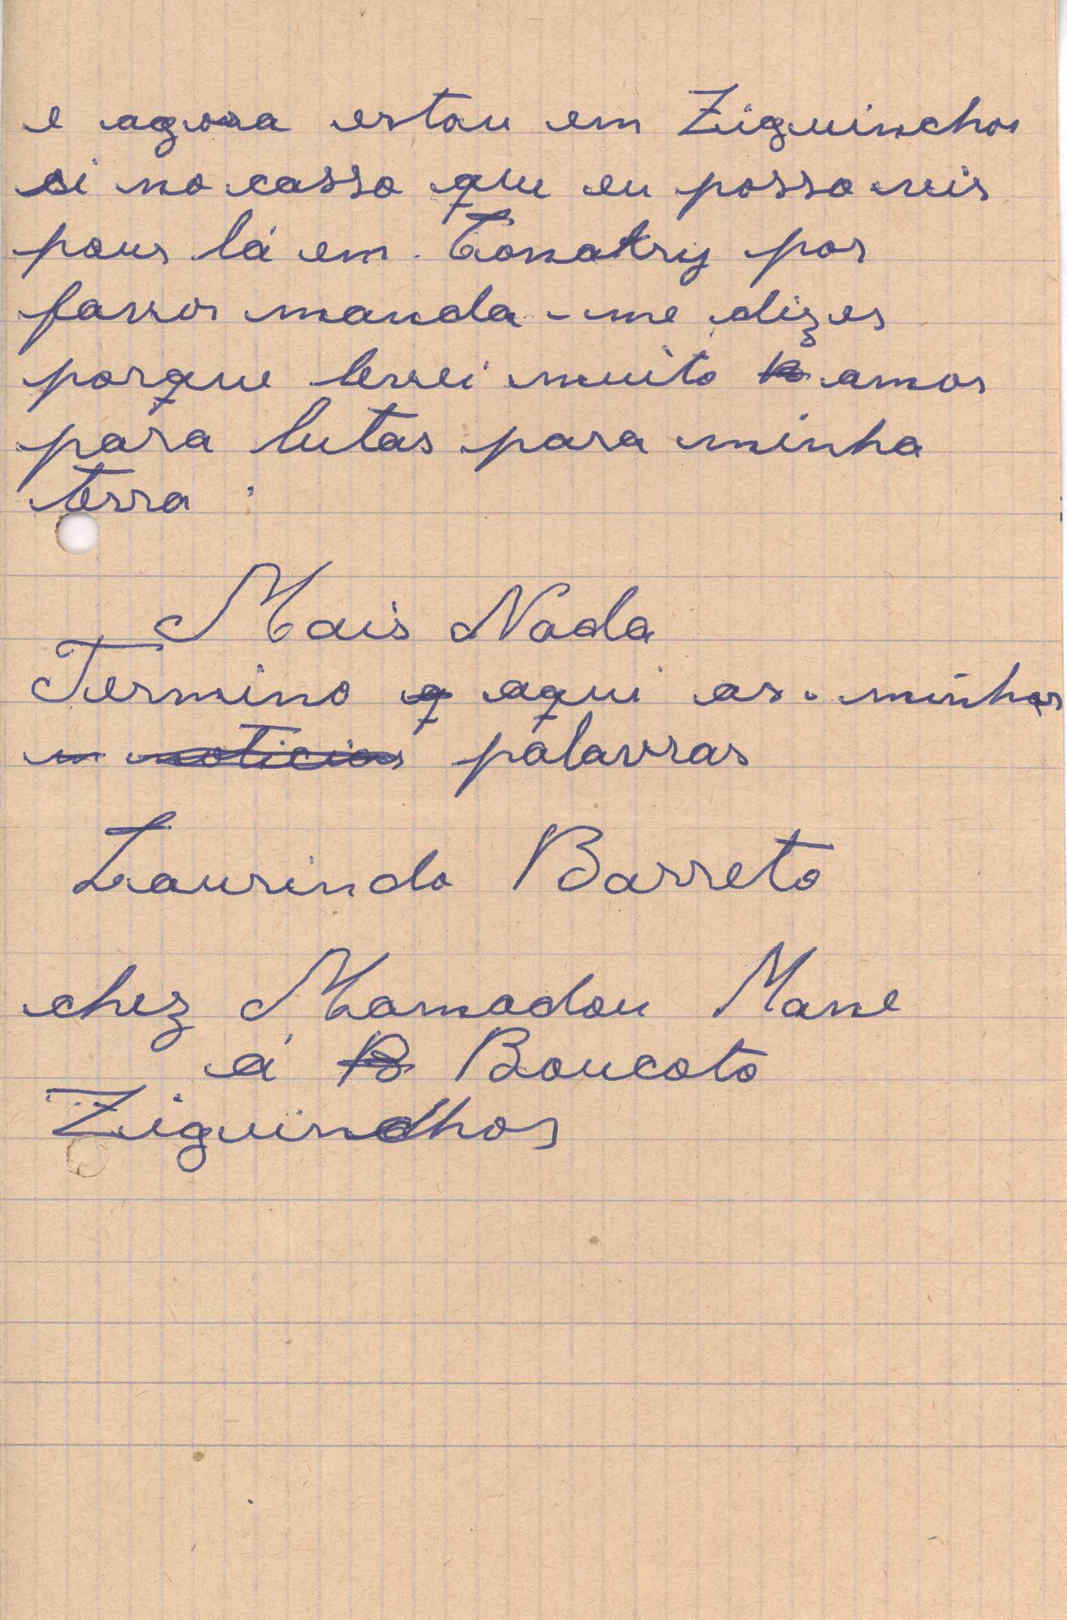 e agora estou em Ziguinchor
si no casso que eu posso vir
pour lá em Conakry por
favvor manda-me dizer
porque levei muito amor
para lutar para minha
terra.
Mais Nada
Termino q aqui as minhas
m noticias palavras
Laurindo Barreto
chez Mamadou Mane
á B Boucoto
Ziguinchor